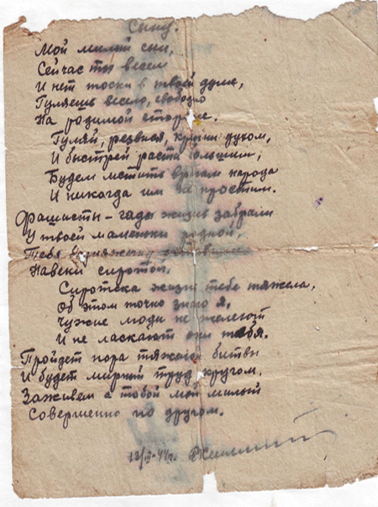 Сыну.
Мой милый сын,
Сейчас ты весел
И нет тоски в твоей душе,
Гуляешь весело, свободно
На родимой стороне.
Гуляй, резвися, крепни духом,
И быстрей расти большим,
Будем мстить врагам народа
И никогда им не простим.
Фашисты – гады жизнь забрали
У твоей маменьки родной,
Тебя
Навеки сиротой.
Сиротска жизнь тебе тяжела,
Об этом точно знаю я,
Чужие люди не жалеют
И не ласкают они тебя.
Пройдет пора тяжелой битвы
И будет мирный труд кругом.
Заживем с тобой мой милый
Совершенно по другом.